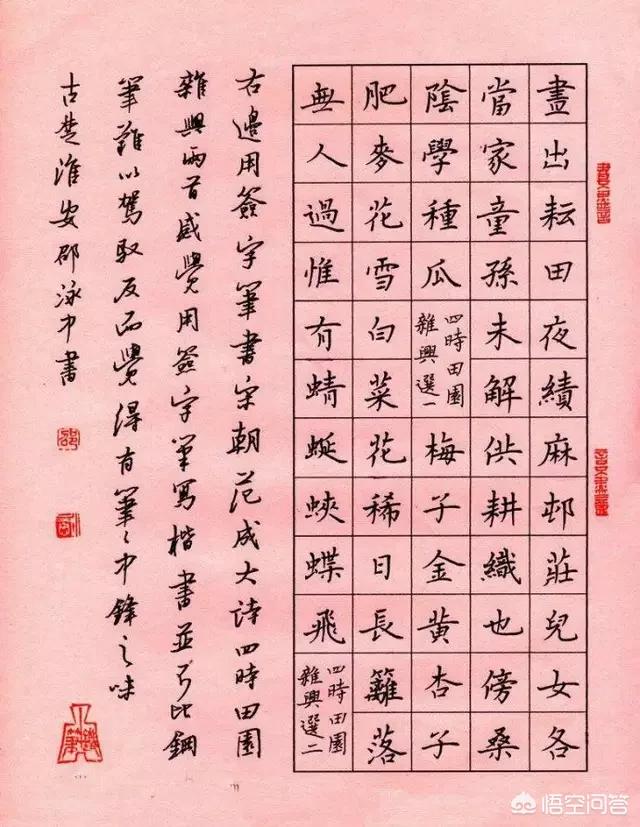 晝出耘田夜績麻邨莊兒女各
當家童孫未解供耕織也傍桑
陰學種瓜
四時田園
雜興選一
梅子金黃杏子
肥麥花雪白菜花稀日長籬落
無人過惟有蜻蜓蛺蝶飛
四時田園
雜興選二
右邊用簽字筆書宋朝范成大詩四時田園
雜興兩首感覺用簽字筆寫楷書並不比鋼
筆難以駕馭反而覺得有筆々中鋒之味
古楚淮安邵泳中書
悟空问答